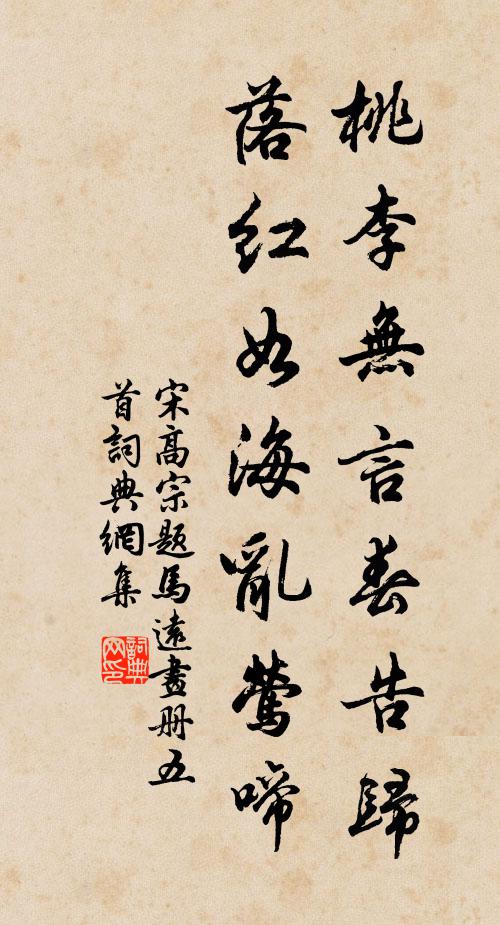 桃李無言春告歸
落紅如海亂鶯啼
宋高宗題馬遠畫册五
首詞典網集
詞典網印